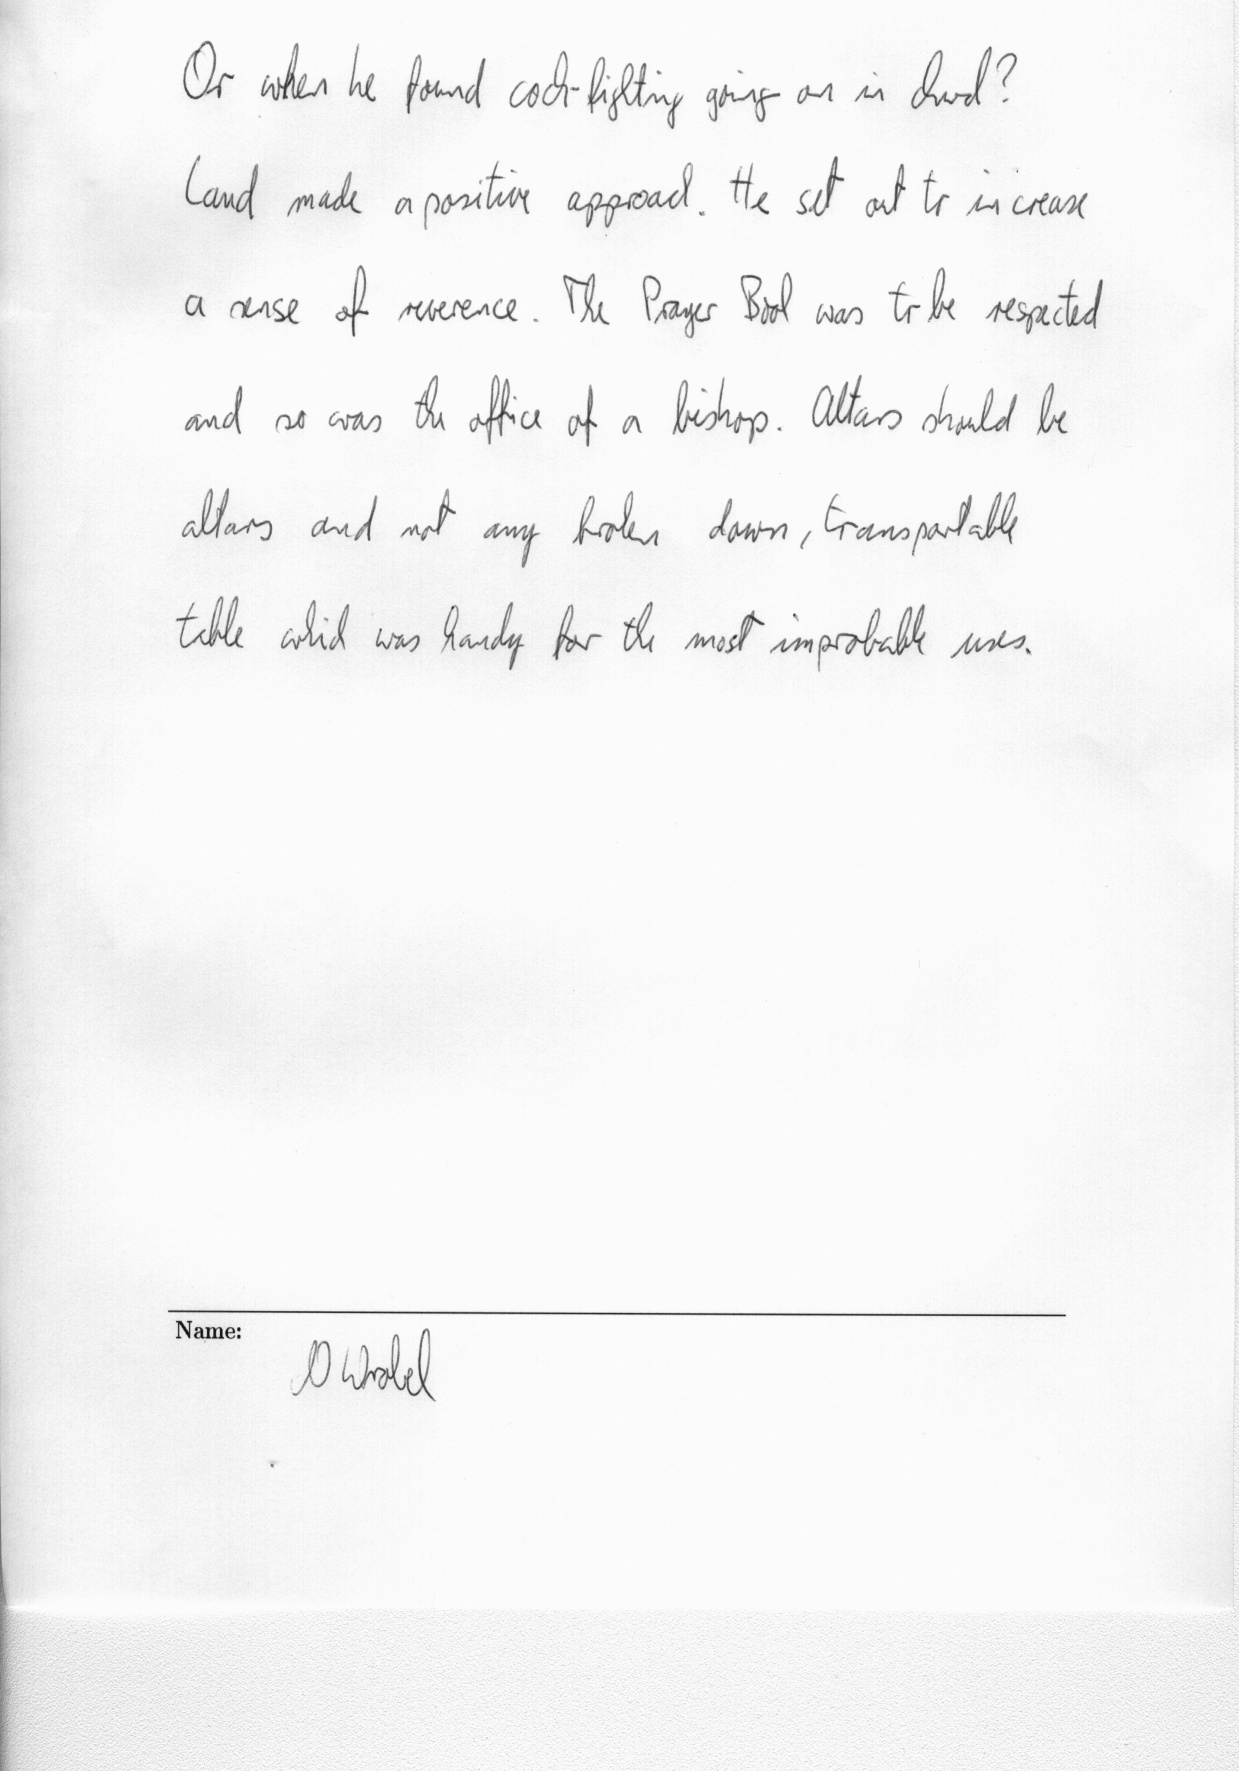 Or when he found cock-fighting going on in church?
Laud made a positive approach. He set out to increase
a sense of reverence. The Prayer Book was to be respected
and so was the office of a bishop. Altars should be
altars and not any broken down, transportable
table which was handy for the most improbable uses.
Name:
D Wrobel